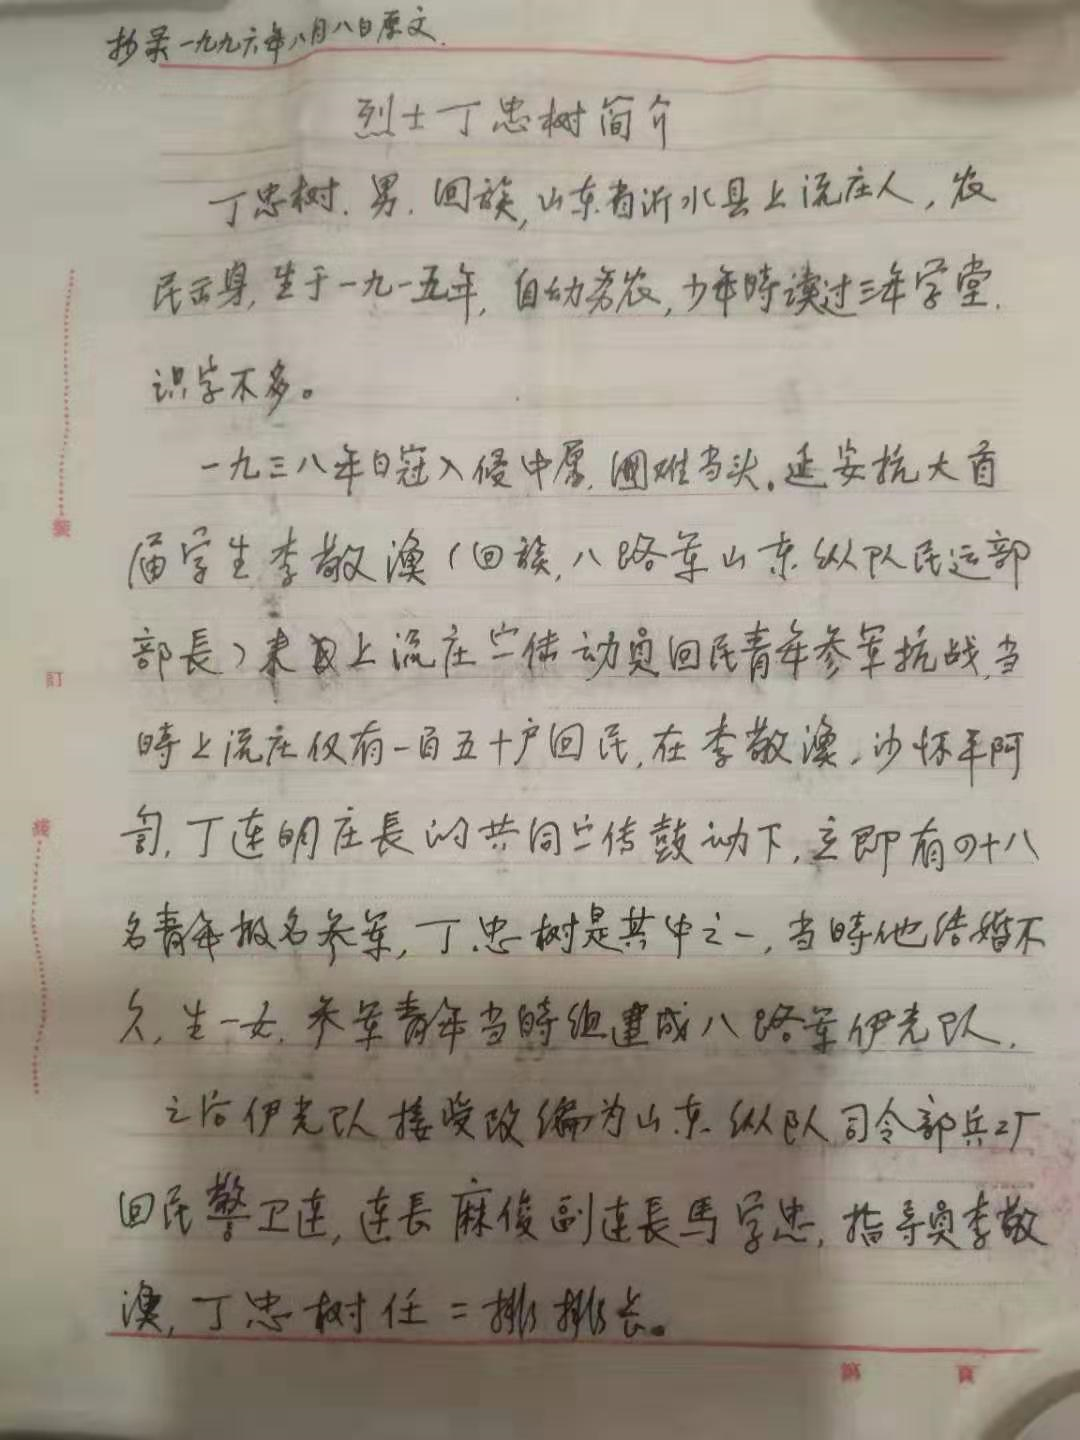 抄录一九九六年八月八日原文.
烈士丁忠树简介
丁忠树.男.回族,山东省沂水县上流庄人,农
民出身,生于一九一五年,自幼务农,少年時读过三年学堂.
识字不多。
一九三八年日寇入侵中原,国难当头。延安抗大首
届学生李敬渙(回族,八路军山东纵队民运部
部長)来上流庄宣传动员回民青年参军抗战,当
時上流庄仅有一百五十户回民,在李敬渙、沙怀平阿
訇,丁连明庄長的共同宣传鼓动下,立即有四十八
名青年报名参军,丁忠树是其中之一,当時他结婚不
久,生一女.参军青年当時组建成八路军伊光队.
之后伊光队接受改编为山东纵队司令部兵工厂
回民警卫连,连長麻俊副连長馬学忠,指导员李敬
渙,丁忠树任二排排长。
裝
訂
綫
第 頁